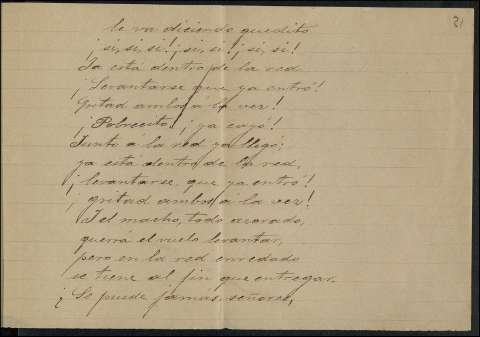 21
le va diciendo quedito
¡si, si, si! ¡si, si! ¡si, si!
Ya está dentro de la red
¡Levantarse que ya entró!
Gritad ambos á la vez!
¡Pobrecito! ¡ya cayó!
Junto á la red ya llegó;
ya está dentro de la red,
¡levantarse, que ya entró!
¡gritad ambos á la vez!
Y el macho, todo azorado,
querrá el vuelo levantar,
pero en la red enredado
se tiene al fin que entregar.
¡Se puede jamas, señores,